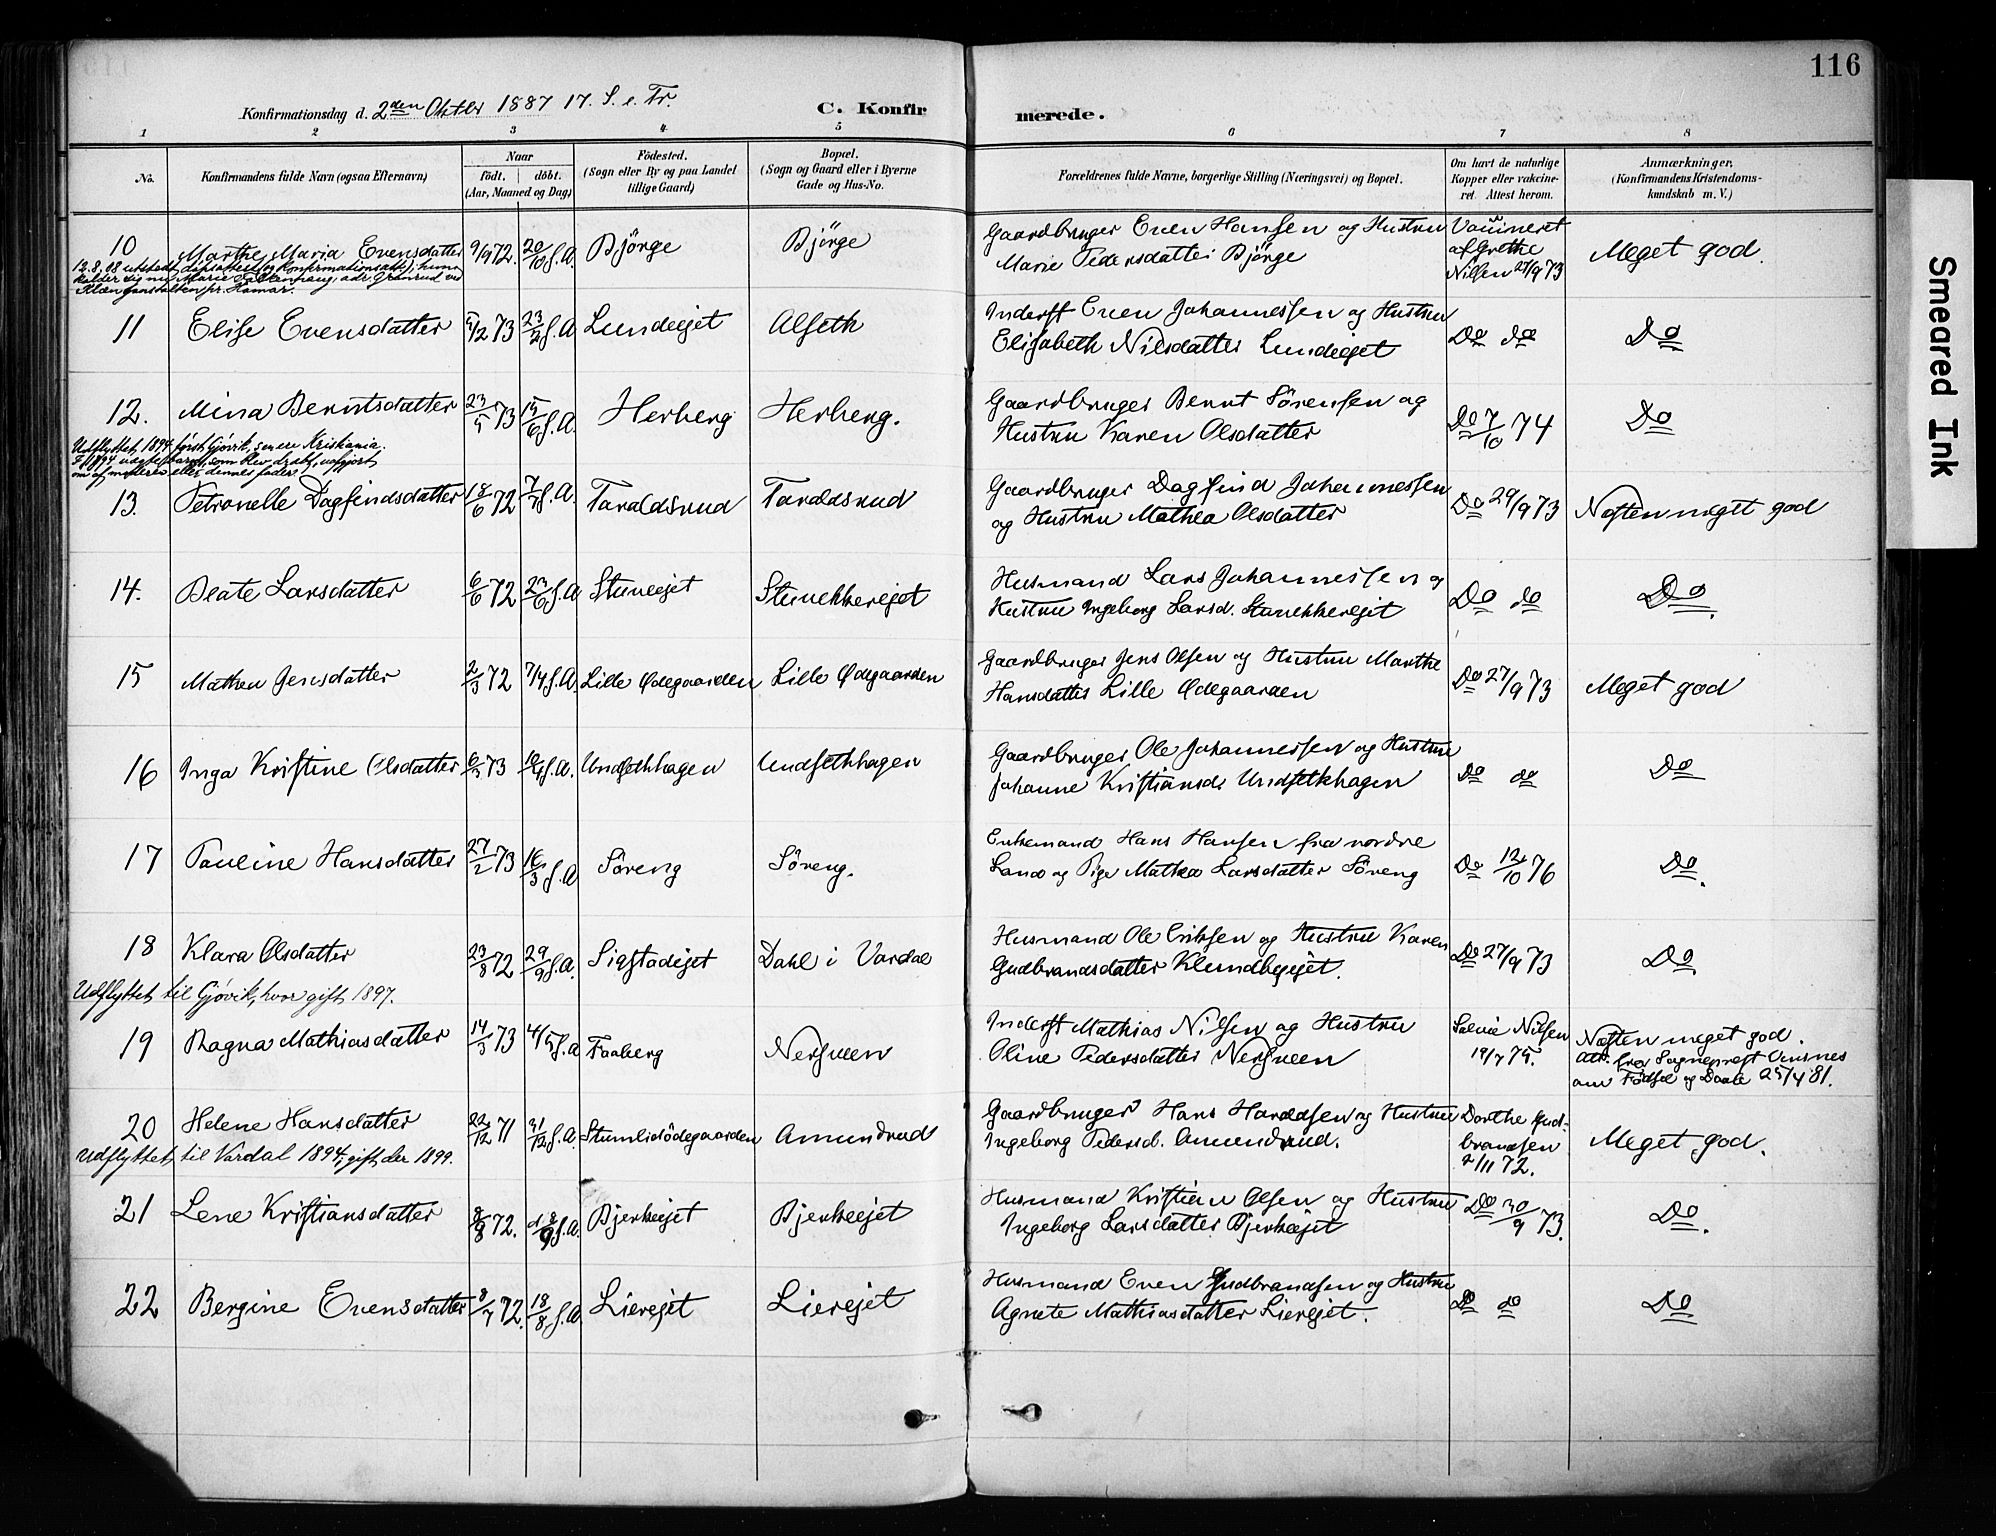 116
Smeared Ink
Konfirmationsdag d. 2den Oktbr 1887 17. S. e. Tr. C. Konfirmerede.
1 2 3 4 5 6 7 8
No.
Konfirmandens fulde Navn (ogsaa Efternavn)
Naar
født. døbt.
(Aar, Maaned og Dag)
Fødested.
(Sogn eller By og paa Landet
tillige Gaard)
Bopæl.
(Sogn og Gaard eller i Byerne
Gade og Hus-No.
Forældrenes fulde Navne, borgerlige Stilling (Næringsvei) og Bopæl.
Om havt de naturlige
Kopper eller vakcine-
ret Attest herom.
Anmærkninger,
(Konfirmandens Kristendoms-
kundskab m. V.)
10 Marthe Maria Evensdatter 9/9 72. 20/10 s.A. Bjørge Bjørge
12.8.08 utstedt daabsattest (og konfirmationsatt); hun
kalder sig nu Marie Falkenhaug, adr. Grønrud ved
Klægganstalten pr. Hamar.
Gaardbruger Even Hansen og Hustru
Marie Pedersdatter Bjørge
Vaccineret
af Grethe
Nilsen 27/9 73
Meget god.
11 Elise Evensdatter 5/2 73 23/2 s.A. Lundeejet Alseth
Inderst Even Johannessen og Hustru
Elisabeth Nilsdatter Lundeejet
Do do Do
12. Mina Berntsdatter 23/5 73 15/6 s.A. Herberg Herberg.
Udflyttet 1894 først Gjøvik, senere Kristiania.
Gaardbruger Bernt Sørensen og
Hustru Karen Olsdatter
Do 7/10 74 Do
13. Petronelle Dagfindsdatter 18/6 72 7/7 s.A. Taraldsrud Taraldsrud
Gaardbruger Dagfind Johannessen
og Hustru Mathea Olsdatter
Do 29/9 73 Næsten meget god
14. Beate Larsdatter 6/6 72 23/6 s.A. Stuneejet Stunekkerejet
Husmand Lars Johannessen og
Hustru Ingeborg Larsd. Stunekkerejet
Do do Do.
15 Mathea Jensdatter 2/3 72 7/4 s.A. Lille Ødegaarden Lille Ødegaarden
Gaardbruger Jens Olsen og Hustru Marthe
Hansdatter Lille Ødegaarden
Do 27/9 73 Meget god
16 Inga Kristine Olsdatter 73 s.A. Undsethhagen Undsethhagen
Gaardbruger Ole Johannessen og Hustru
Johanne Kristiansd. Undsethhagen
Do do Do
17 Pauline Hansdatter 27/2 73 16/3 s.A Søreng Søreng.
Enkemand Hans Hansen fra nordre
Land og Pige Mathea Larsdatter Søreng
Do 12/10 76 Do.
18 Klara Olsdatter 23/8 72 29/9 s.A. Sigstadejet Dahl i Vardal
Udflyttet til Gjøvik, hvor gift 1897.
Husmand Ole Eriksen og Hustru Karen
Gudbrandsdatter Klundbyejet.
Do 27/9 73 Do
19 Ragna Mathiasdatter 14/3 73 4/5 s.A Faaberg Nersveen
Inderst Mathias Nilsen og Hustru
Oline Pedersdatter Nersveen
Nilsen
19/7 75.
Næsten meget god.
Att. fra Sogneprest
om Fødsel og Daab 25/4 81.
20 Helene Hansdatter 22/12 71 31/12 s.A. Stumlidødegaarden Amundrud
Udflyttet til Vardal 1894, gift der 1899.
Gaardbruger Hans Haraldsen og Hustru
Ingeborg Pedersd. Amundrud.
Dorthe Gud-
brandsen
2/11 72.
Meget god.
21 Lene Kristiansdatter 8/8 72. 18/9 s.A. Bjerkeejet Bjerkeejet
Husmand Kristian Olsen og Hustru
Ingeborg Larsdatter Bjerkeejet
Do 30/9 73. Do.
22 Bergine Evensdatter 8/7 72. 18/8 s.A. Lierejet Lierejet
Husmand Even Gudbrandsen og Hustru
Agnete Mathiasdatter Lierejet.
Do do Do